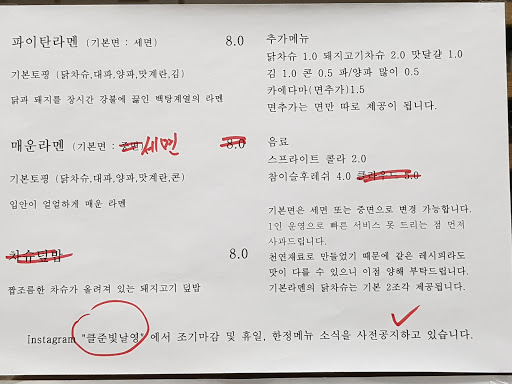 파이탄라멘 (기본면 : 세면) 8.0
기본토핑 (닭차슈,대파,양파,맛계란,김)
닭과 돼지를 장시간 강불에 끓인 백탕계열의 라멘
매운라멘 (기본면 : 중면) 세면 8.0
기본토핑 (닭차슈,대파,양파,맛계란,콘)
입안이 얼얼하게 매운 라멘
차슈덮밥 8.0
짭조름한 차슈가 올려져 있는 돼지고기 덮밥
추가메뉴
닭차슈 1.0 돼지고기차슈 2.0 맛달걀 1.0
김 1.0 콘 0.5 파/양파 많이 0.5
카에다마(면추가)1.5
면추가는 면만 따로 제공이 됩니다.
음료
스프라이트 콜라 2.0
참이슬후레쉬 4.0 클라우드 5.0
기본면은 세면 또는 중면으로 변경 가능합니다.
1인 운영으로 빠른 서비스 못 드리는 점 먼저
사과드립니다.
천연재료로 만들었기 때문에 같은 레시피라도
맛이 다를 수 있으니 이점 양해 부탁드립니다.
기본라멘의 닭차슈는 기본 2조각 제공됩니다.
Instagram "클준빛날영" 에서 조기마감 및 휴일, 한정메뉴 소식을 사전공지하고 있습니다.